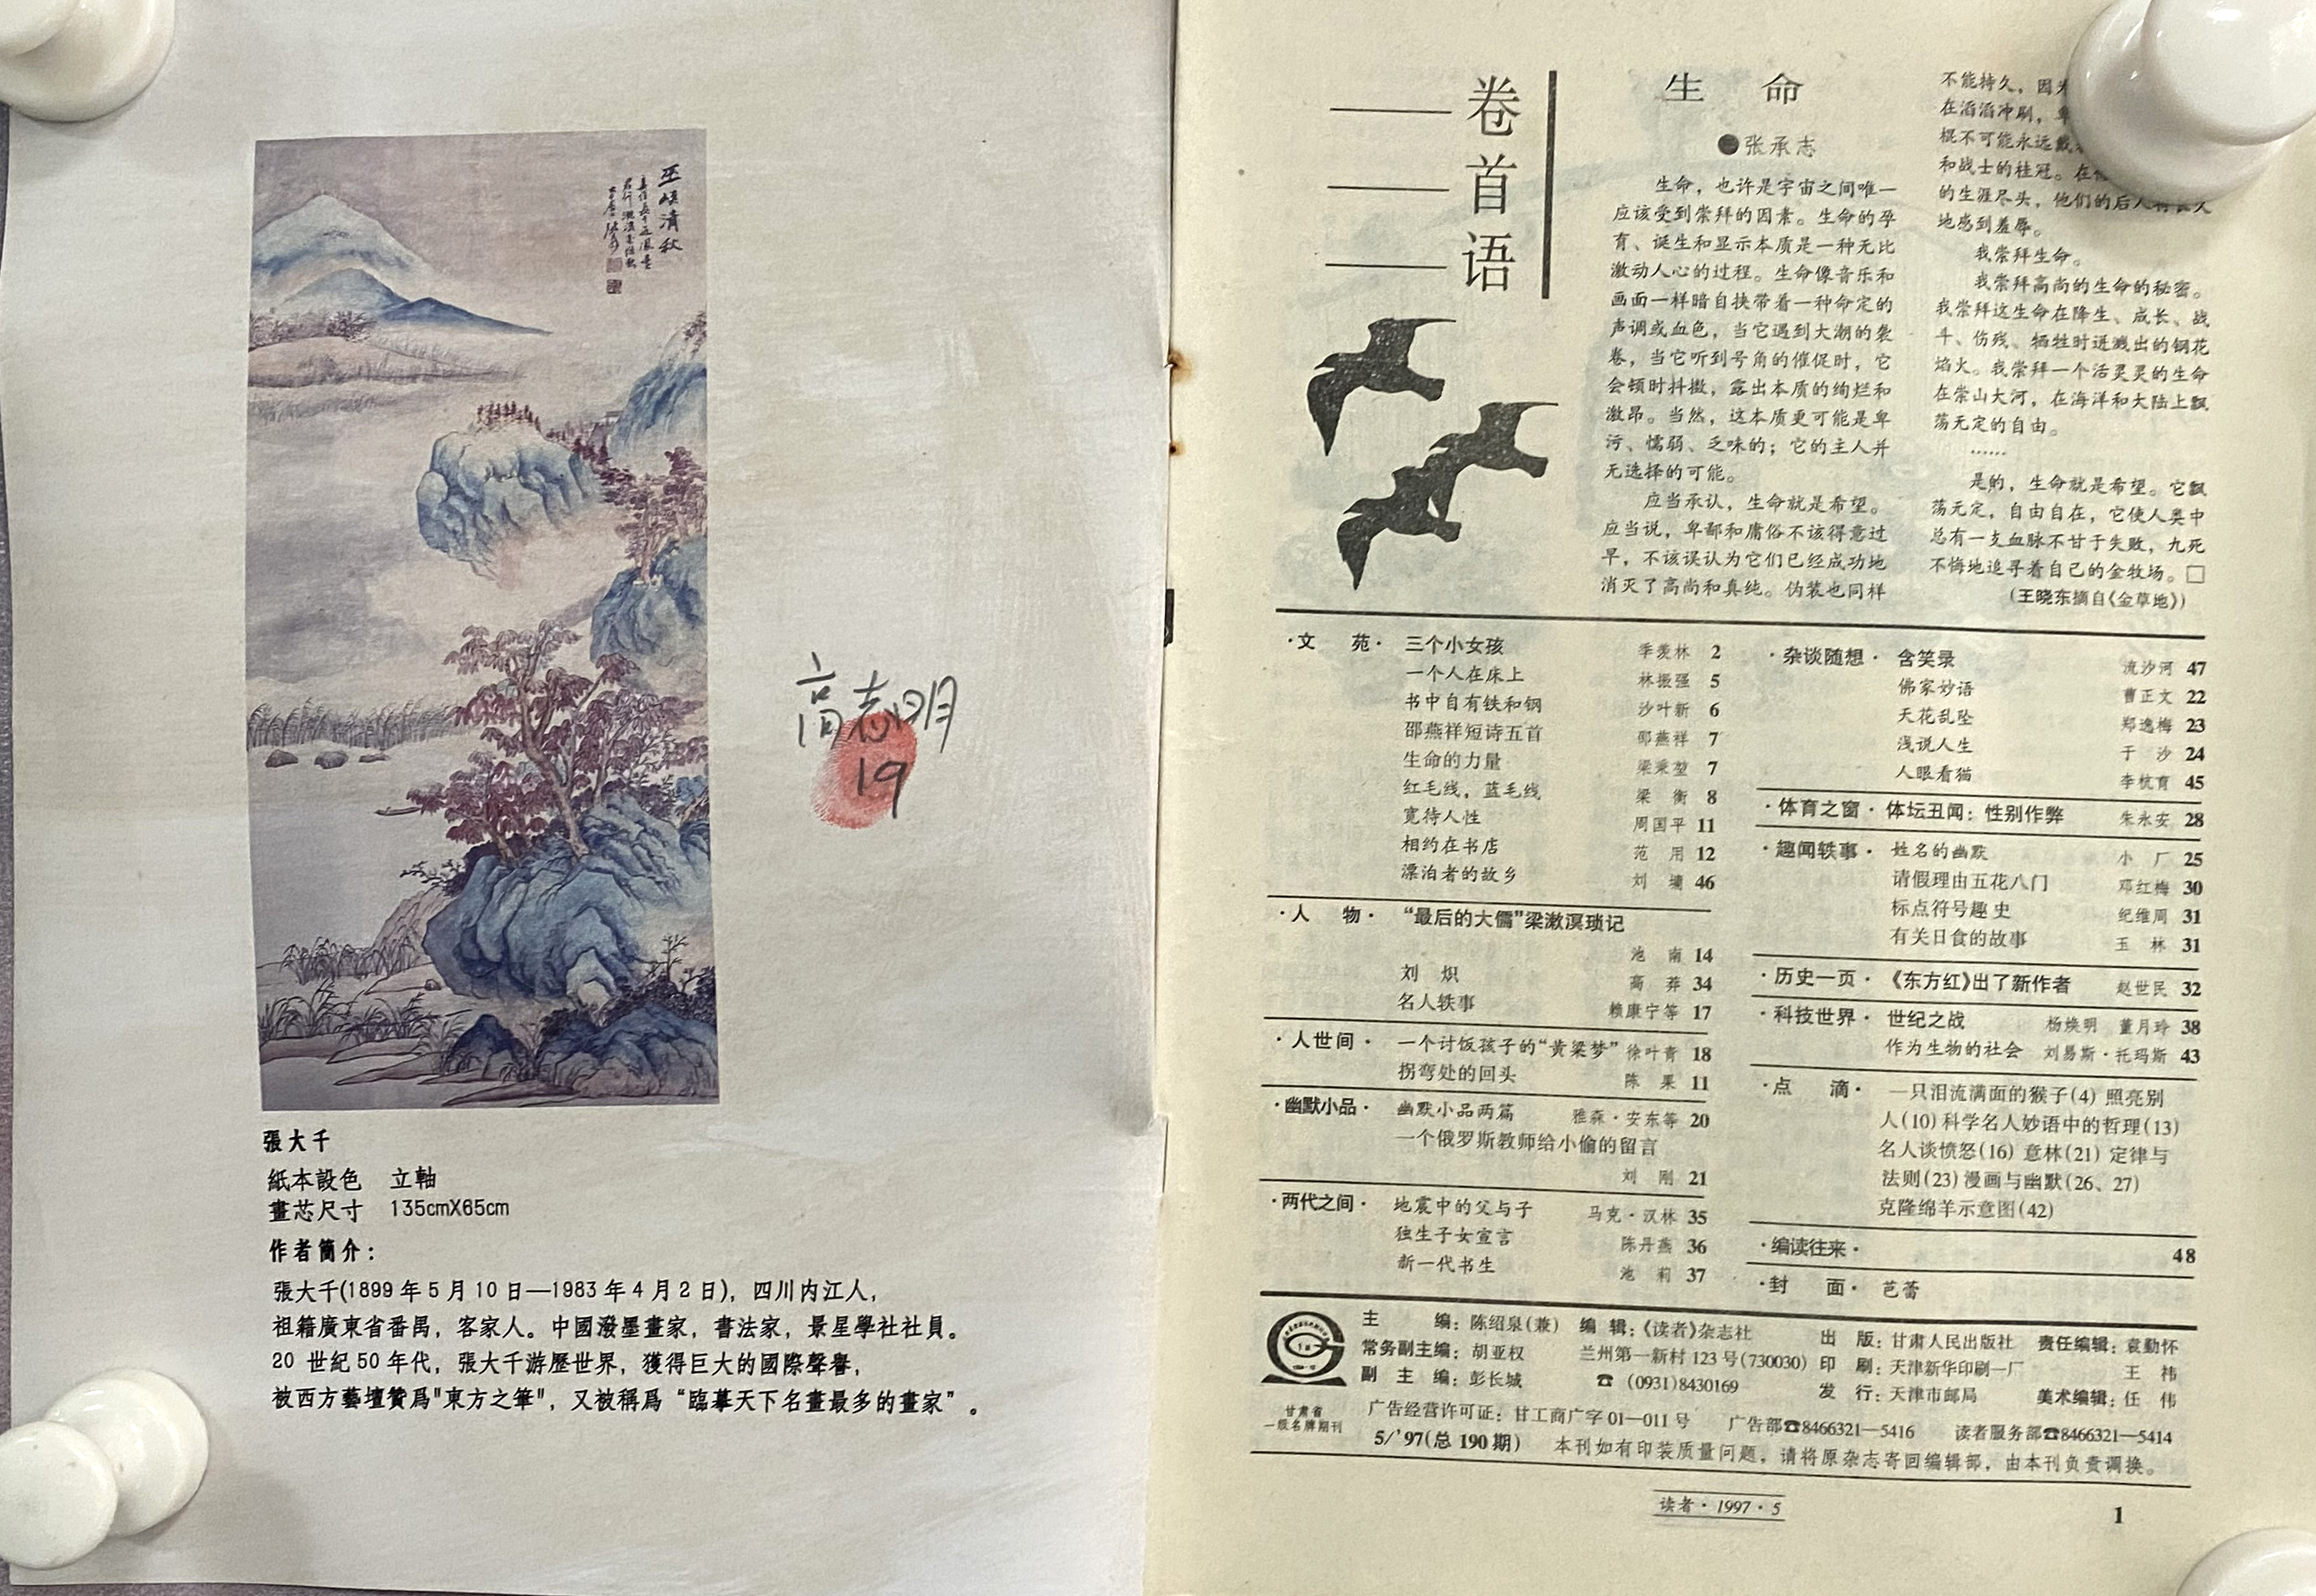 巫峡清秋
高志明
19
張大千
紙本設色 立軸
畫芯尺寸 135cmX65cm
作者簡介：
張大千(1899年5月10日—1983年4月2日)，四川内江人，
祖籍廣東省番禺，客家人。中國潑墨畫家，書法家，景星學社社員。
20 世紀50年代，張大千游歷世界，獲得巨大的國際聲譽，
被西方藝壇贊爲"東方之筆"，又被稱爲“臨摹天下名畫最多的畫家”。
卷首语
生 命
●张承志
生命，也许是宇宙之间唯一
应该受到崇拜的因素。生命的孕
育、诞生和显示本质是一种无比
激动人心的过程。生命像音乐和
画面一样暗自挟带着一种命定的
声调或血色，当它遇到大潮的袭
卷，当它听到号角的催促时，它
会顿时抖擞，露出本质的绚烂和
激昂。当然，这本质更可能是卑
污、懦弱、乏味的；它的主人并
无选择的可能。
应当承认，生命就是希望。
应当说，卑鄙和庸俗不该得意过
早，不该误认为它们已经成功地
消灭了高尚和真纯。伪装也同样
不能持久，因为
在滔滔冲刷，卑
棍不可能永远戴
和战士的桂冠。在
的生涯尽头，他们的后人将长久
地感到羞辱。
我崇拜生命。
我崇拜高尚的生命的秘密。
我崇拜这生命在降生、成长、战
斗、伤残、牺牲时迸溅出的钢花
焰火。我崇拜一个活灵灵的生命
在崇山大河，在海洋和大陆上飘
荡无定的自由。
……
是的，生命就是希望。它飘
荡无定，自由自在，它使人类中
总有一支血脉不甘于失败，九死
不悔地追寻着自己的金牧场。□
(王晓东摘自《金草地》)
·文 苑· 三个小女孩 季羡林 2
一个人在床上 林振强 5
书中自有铁和钢 沙叶新 6
邵燕祥短诗五首 邵燕祥 7
生命的力量 梁秉堃 7
红毛线，蓝毛线 梁 衡 8
宽待人性 周国平 11
相约在书店 范 用 12
漂泊者的故乡 刘 墉 46
·人 物· “最后的大儒”梁漱溟琐记
池 南 14
刘 炽 高 莽 34
名人轶事 赖康宁等 17
·人世间· 一个讨饭孩子的“黄梁梦” 徐叶青 18
拐弯处的回头 陈 果 11
·幽默小品· 幽默小品两篇 雅森·安东等 20
一个俄罗斯教师给小偷的留言
刘 刚 21
·两代之间· 地震中的父与子 马克·汉林 35
独生子女宣言 陈丹燕 36
新一代书生 池 莉 37
·杂谈随想· 含笑录 流沙河 47
佛家妙语 曹正文 22
天花乱坠 郑逸梅 23
浅说人生 于 沙 24
人眼看猫 李杭育 45
·体育之窗· 体坛丑闻：性别作弊 朱永安 28
·趣闻轶事· 姓名的幽默 小 厂 25
请假理由五花八门 邓红梅 30
标点符号趣史 纪维周 31
有关日食的故事 玉 林 31
·历史一页· 《东方红》出了新作者 赵世民 32
·科技世界· 世纪之战 杨焕明 董月玲 38
作为生物的社会 刘易斯·托玛斯 43
·点 滴· 一只泪流满面的猴子(4) 照亮别
人(10) 科学名人妙语中的哲理(13)
名人谈愤怒(16) 意林(21) 定律与
法则(23) 漫画与幽默(26、27)
克隆绵羊示意图(42)
·编读往来· 48
·封 面· 芭蕾
主 编：陈绍泉(兼) 编 辑：《读者》杂志社 出 版：甘肃人民出版社 责任编辑：袁勤怀
常务副主编：胡亚权 兰州第一新村123号(730030) 印 刷：天津新华印刷一厂 王 祎
副 主 编：彭长城 ☎ (0931)8430169 发 行：天津市邮局 美术编辑：任 伟
甘肃省
一级名牌期刊
广告经营许可证：甘工商广字01—011号 广告部☎8466321—5416 读者服务部☎8466321—5414
5/'97(总190期) 本刊如有印装质量问题，请将原杂志寄回编辑部，由本刊负责调换。
读者·1997·5
1